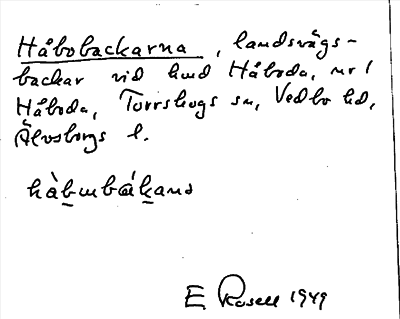 Håbobackarna, landsvägs-
backar vid hmd Håboda, nr 1
Håboda, Torrskogs sn, Vedbo hd,
Älvsborgs l.
hàbmbákans
E Rosell 1949